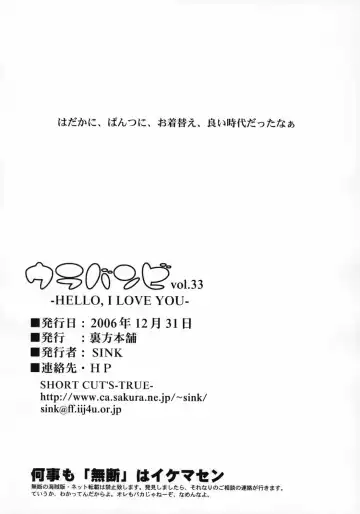 はだかに、ぱんつに、お着替え、良い時代だったなぁ
ウラバンビ vol.33
-HELLO, I LOVE YOU-
■発行日：2006年12月31日
■発行：裏方本舗
■発行者：SINK
■連絡先・HP
SHORT CUT'S-TRUE-
http://www.ca.sakura.ne.jp/~sink/
sink@ff.iij4u.or.jp
何事も「無断」はイケマセン
無断の海賊版・ネット転載は禁止致します。発見しましたら、それなりのご相談の連絡が行きます。
ていうか、わかってんだからよ。オレもバカじゃねーぞ、なめんなよ。